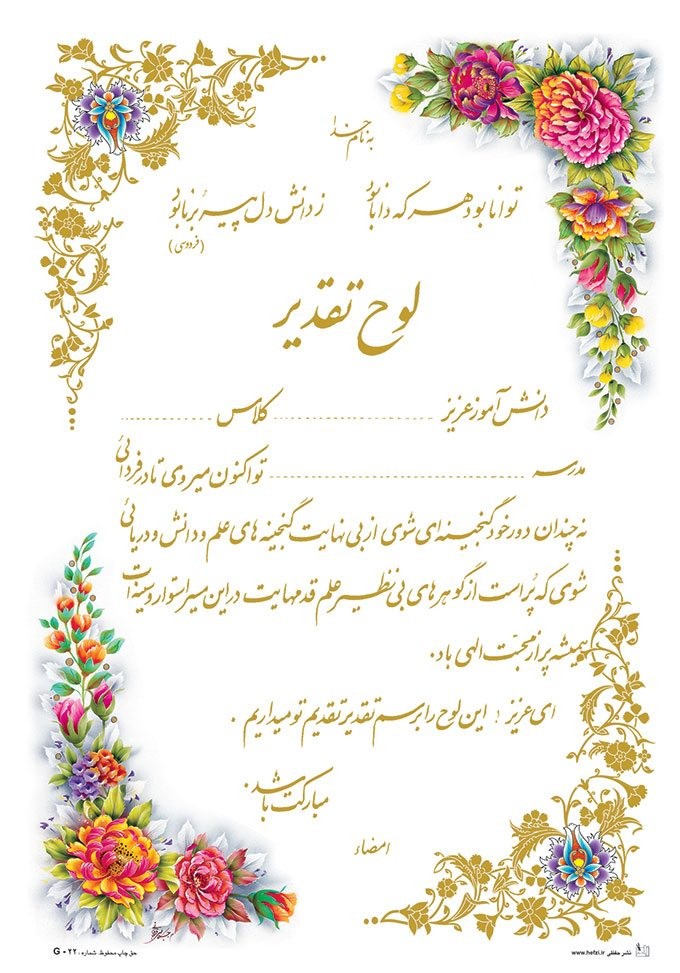 به نام خدا
توانا بود هر که دانا بود ز دانش دل پیر برنا بود
(فردوسی)
لوح تقدیر
دانش آموز عزیز ........................ کلاس ........................
مدرسه ........................ تو اکنون میروی تا در فردائی
نه چندان دور خود گنجینه ای شوی از بی نهایت گنجینه های علم و دانش و دریائی
شوی که پُر است از گوهرهای بی نظیر علم قدمهایت در این مسیر استوار و سینه ات
همیشه پر از محبت الهی باد.
ای عزیز ! این لوح را برسم تقدیر تقدیم تو میداریم .
مبارکت باشد.
امضاء
نشر حفظی www.hefzi.ir
حق چاپ محفوظ. شماره ۰۲۲ G